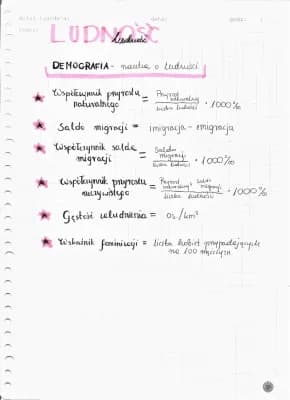 LUDNOŚĆ
Ludność
DEMOGRAFIA - nauka o ludności
Współczynnik przyrostu naturalnego = Przyrost naturalny / liczba ludności · 1000‰
Saldo migracji = imigracja - emigracja
Współczynnik salda migracji = Saldo migracji / liczba ludności · 1000‰
Współczynnik przyrostu rzeczywistego = Przyrost naturalny + saldo migracji / liczba ludności · 1000‰
Gęstość zaludnienia = os/km²
Wskaźnik feminizacji = liczba kobiet przypadających
na 100 mężczyzn